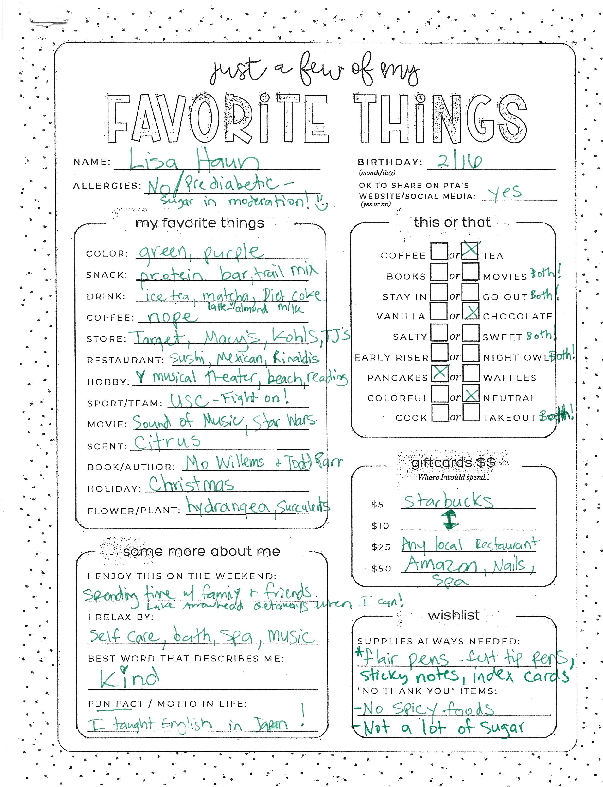 just a few of my
FAVORITE THINGS
NAME: Lisa Haun
BIRTHDAY: 2/16
(month/day)
ALLERGIES: No/Prediabetic -
Sugar in moderation!
OK TO SHARE ON PTA'S
WEBSITE/SOCIAL MEDIA: yes
(yes or no)
my favorite things
COLOR: green, purple
SNACK: protein bar, trail mix
DRINK: ice tea, matcha, Diet coke
latte-almond milk
COFFEE: nope
STORE: Target, Macy's, Kohls, TJ's
RESTAURANT: Sushi, Mexican, Rinaldis
HOBBY: musical theater, beach, reading
SPORT/TEAM: USC - Fight on!
MOVIE: Sound of Music, Star Wars
SCENT: Citrus
BOOK/AUTHOR: Mo Willems + Todd Parr
HOLIDAY: Christmas
FLOWER/PLANT: hydrangea, Succulents
this or that
COFFEE or X TEA
BOOKS or MOVIES Both!
STAY IN or GO OUT Both!
VANILLA or X CHOCOLATE
SALTY or SWEET Both!
EARLY RISER or NIGHT OWL Both!
PANCAKES X or WAFFLES
COLORFUL or X NEUTRAL
COOK or TAKEOUT Both!
giftcards $$
Where I would spend...
$5 Starbucks
$10
$25 Any local Restaurant
$50 Amazon, Nails,
Spa
some more about me
I ENJOY THIS ON THE WEEKEND:
Spending time w/ family + friends
Lake Arrowhead getaways when I can!
I RELAX BY:
Self care, bath, Spa, music
BEST WORD THAT DESCRIBES ME:
Kind
FUN FACT / MOTTO IN LIFE:
I taught English in Japan!
wishlist
SUPPLIES ALWAYS NEEDED:
*flair pens - felt tip pens,
sticky notes, index cards
"NO THANK YOU" ITEMS:
-No spicy foods
-Not a lot of sugar